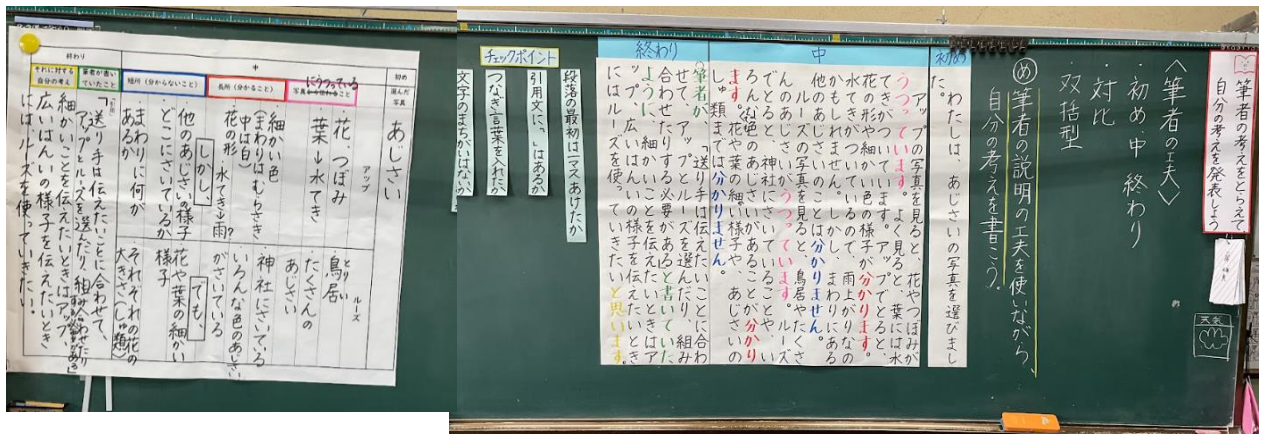 筆者の考えをとらえて
自分の考えを発表しよう
〈筆者の工夫〉
・初め・中 終わり
・対比
・双括型
め 筆者の説明の工夫を使いながら、
自分の考えを書こう。
天気
初め
わたしは、あじさいの写真を選びまし
た。
中
アップの写真を見ると、花やつぼみが
うつっています。よく見ると、葉には水
てきがついています。アップでとると、
花の形や細かい色の様子が分かります。
水てきがついているので、雨上がりなの
かもしれません。しかし、まわりにある
他のあじさいのことは分かりません。
ルーズの写真を見ると、鳥居やたくさ
んのあじさいがうつっています。ルーズ
でとると、神社にさいていることや、い
ろんな色のあじさいがあることが分かり
ます。花や葉の細い様子や、あじさいの
しゅ類までは分かりません。
終わり
筆者が、「送り手は伝えたいことに合わ
せて、アップとルーズを選んだり、組み
合わせたりする必要がある」と書いていた
ように、細かいことを伝えたいときはア
ップ、広いはんいの様子を伝えたいとき
にはルーズを使っていきたいと思います。
チェックポイント
段落の最初は一マスあけたか
引用文に「」はあるか
つなぎ言葉を入れたか
文字のまちがいはないか
初め
選んだ
写真
あじさい
中
アップ
ルーズ
写真にうつっていること
花、つぼみ
葉→水てき
鳥居
とりい
たくさんの
あじさい
長所（分かること）
細かい色
（まわりはむらさき
中は白）
花の形・水てき→雨?
・神社にさいている
・いろんな色のあじさい
がさいている
短所（分からないこと）
しかし、
・他のあじさいの様子
・どこにさいているか
・まわりに何が
あるか
でも、
花や葉の細かい
様子
それぞれの花の
大きさ（しゅ類）
終わり
筆者が書い
ていたこと
「送り手は伝えたいことに合わせて、
アップとルーズを選んだり、組み合わせたり
する必要がある」
それに対する
自分の考え
細かいことを伝えたいときはアップ、
広いはんいの様子を伝えたいとき
にはルーズを使っていきたい。